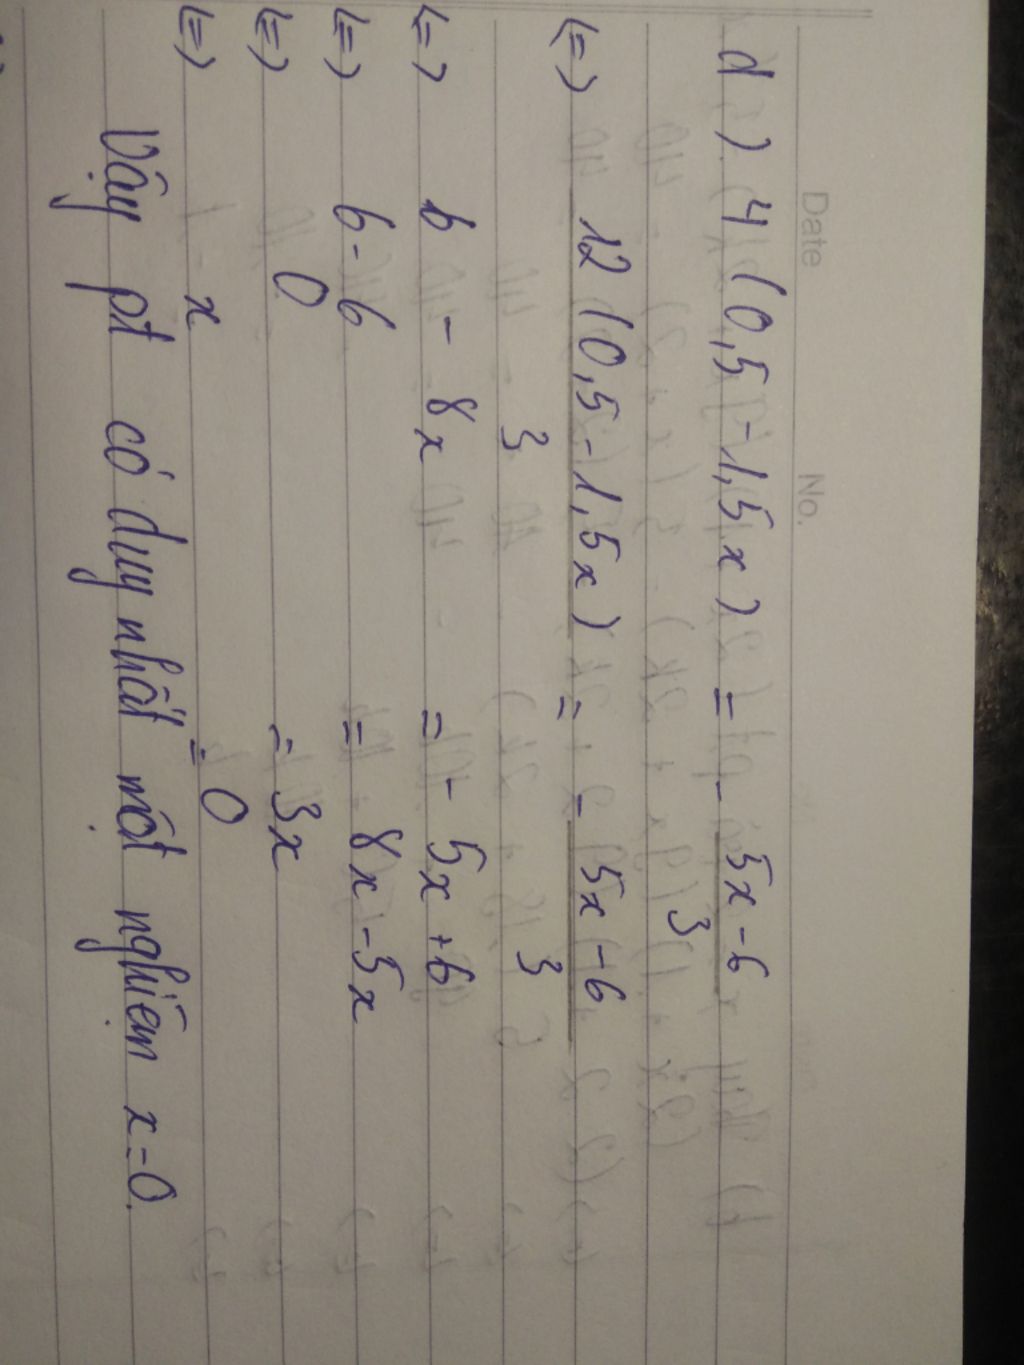 Date No.
d) 4 (0,5 - 1,5x) = - 5x - 6
3
<=> 12 (0,5 - 1,5x) = - 5x - 6
3 3
<=> 6 - 8x = - 5x + 6
<=> 6 - 6 = 8x - 5x
<=> 0 = 3x
<=> x = 0
Vậy pt có duy nhất một nghiệm x = 0.